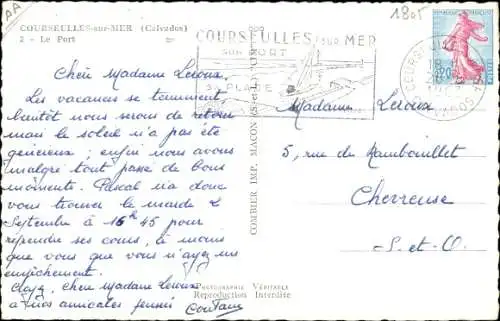 COURSEULLES-sur-MER (Calvados)
2 - Le Port
1805
COURSEULLES SUR MER
SON PORT
SA PLAGE
COMBIER IMP. MACON (S.-et-L.)
Chère Madame Leroux,
Les vacances se terminent,
bientôt nous serons de retour
mais le soleil n'a pas été
généreux ; enfin nous avons
malgré tout passé de bons
moments. Pascal ira donc
vous trouver le mardi 2
Septembre à 16h 45 pour
reprendre ses cours, à moins
que vous que vous n'ayez un
empêchement.
chère Madame Leroux
à nos amicales pensées
Madame Leroux
5, rue de Rambouillet
Chevreuse
S-et-O.
PHOTOGRAPHIE VÉRITABLE
Reproduction Interdite